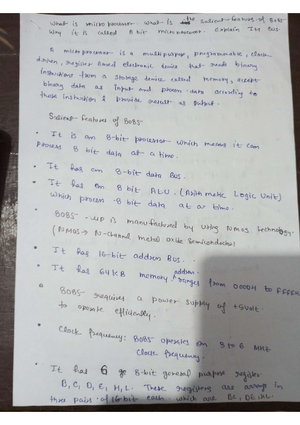 what is microprocessor what is the Salient feature of 8085
Why it is called 8 bit microprocessor. Explain Its Bus
A microprocessor is a multipurpose, programmable, clock-
driven, register based electronic device that reads binary
instructions from a storage device called memory, accept
binary data as input and process data according to
those instruction & provide result as output.
Salient features of 8085
• It is an 8-bit processor which means it can
process 8 bit data at a time.
• It has an 8-bit data Bus.
• It has an 8 bit ALU. (Arithmetic Logic Unit)
which process 8 bit data at a time.
• 8085 - up is manufactured by using NMOS technology.
(NMOS → N-channel metal oxide Semiconductor)
• It has 16-bit address Bus.
• It has 64kB memory address ranges from 0000H to FFFFH
• 8085 requires a power supply of +5volt
to operate efficiently.
• Clock frequency: 8085 operates on 3 to 6 MHz
Clock frequency.
• It has 6 8-bit general purpose register
B, C, D, E, H, L. These registers are arrange in
three pairs of 16-bit each which are BC, DE, HL.